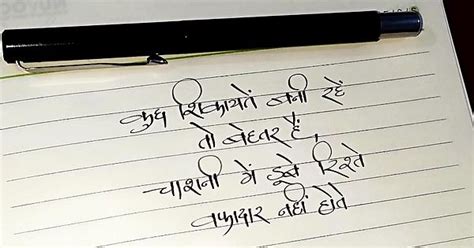 कुछ शिकायतें बनी रहें
तो बेहतर हैं,
चाशनी में डूबे रिश्ते
वफ़ादार नहीं होते